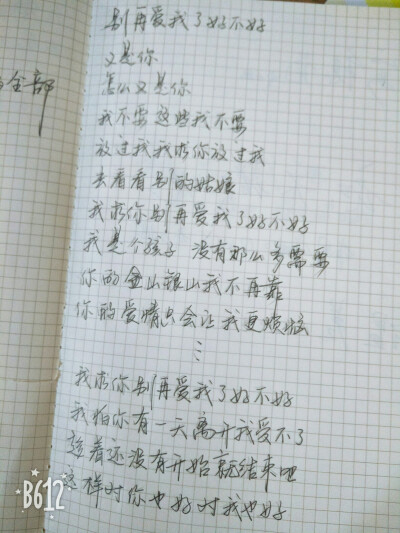 别再爱我了好不好
又是你
怎么又是你
我不要这些我不要
放过我我求你放过我
去看看别的姑娘
我求你别再爱我了好不好
我是个孩子 没有那么多需要
你的金山银山我不再靠
你的爱情只会让我更烦恼
⋮
我求你别再爱我了好不好
我怕你有一天离开我受不了
趁着还没有开始就结束吧
这样对你也好对我也好
全部
B612